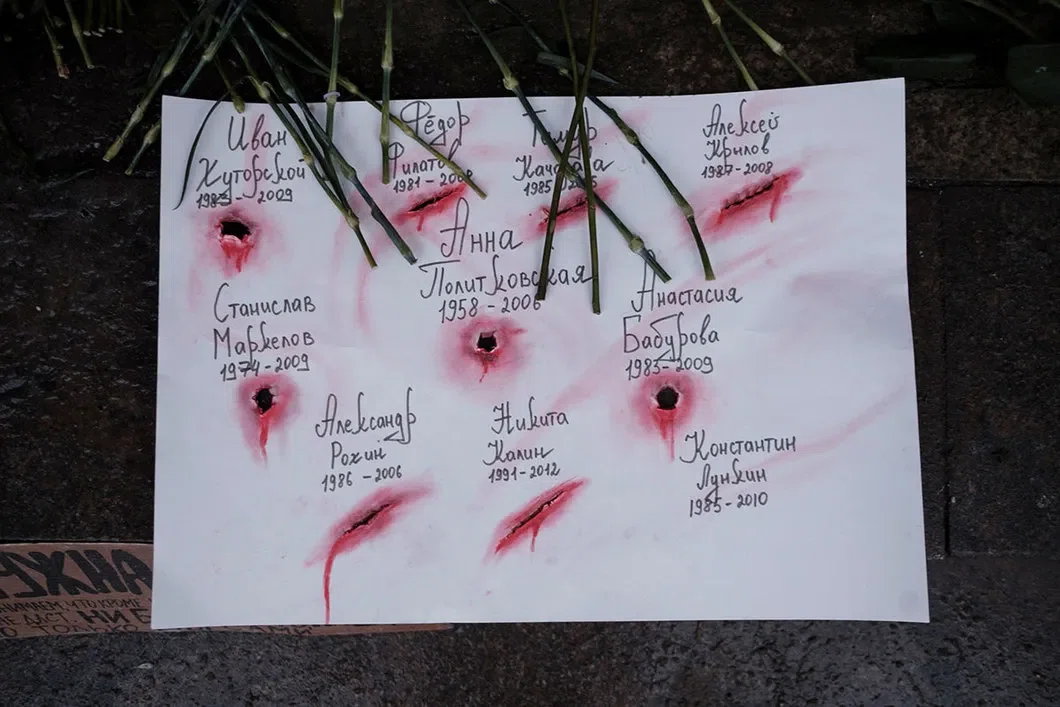 Иван
Хуторской
2009
Фёдор
Филатов
1981 -
Качарава
1985
Алексей
Крылов
1987 - 2008
Анна
Политковская
1958 - 2006
Станислав
Маркелов
1974 - 2009
Анастасия
Бабурова
1983 - 2009
Александр
Рохин
1986 - 2006
Никита
Калин
1991 - 2012
Константин
Лункин
1985 - 2010
ЧТО КРОМЕ
НЕ ДАСТ